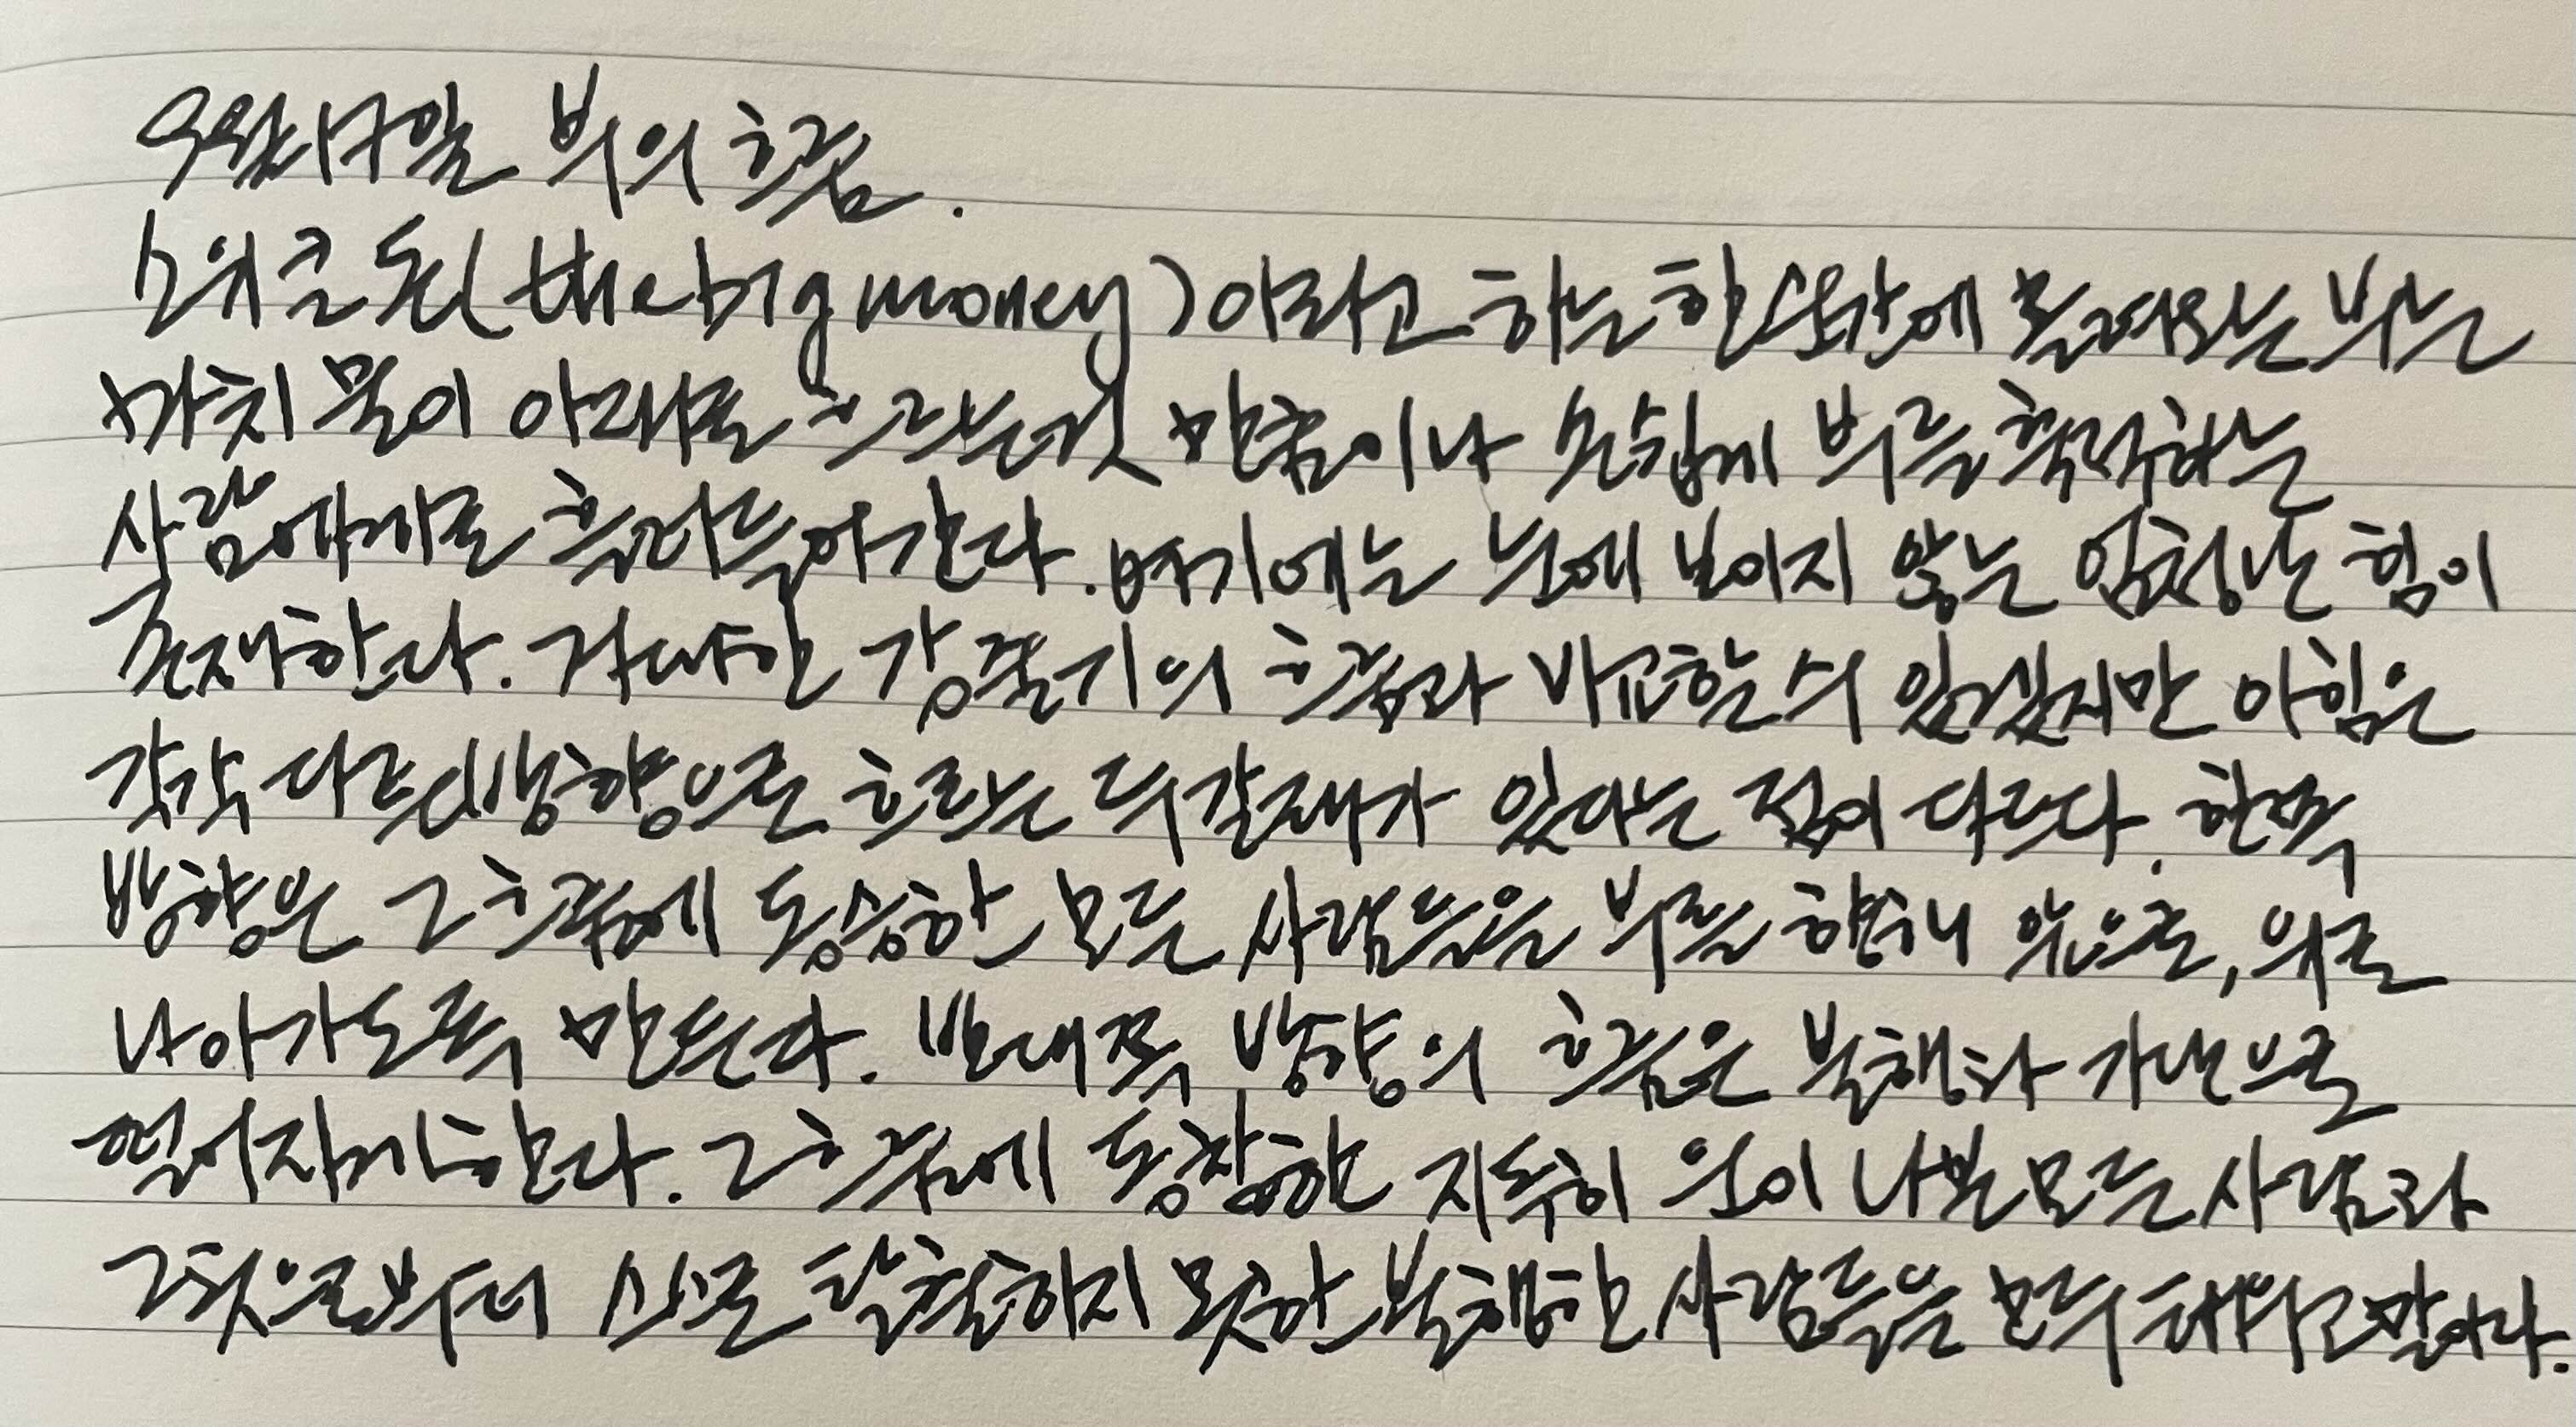 9월17일 부의 흐름.
소위 큰 돈(the big money)이라고 하는 한순간에 흘러오는 부는
마치 물이 아래로 흐르는 것 만큼이나 손쉽게 부를 획득하는
사람에게로 흘러 들어간다. 여기에는 눈에 보이지 않는 엄청난 힘이
존재한다. 거대한 강줄기의 흐름과 비교할 수 있겠지만 이 힘은
각각 다른 방향으로 흐르는 두 갈래가 있다는 점이 다르다. 한쪽
방향은 그 흐름에 동승한 모든 사람들을 부를 향해 앞으로, 위로
나아가도록 만든다. 반대쪽 방향의 흐름은 불행과 가난으로
떨어지게 한다. 그 흐름에 동참한 지독히 운이 나쁜 모든 사람과
그것으로부터 스스로 탈출하지 못한 불행한 사람들을 모두 태우고 만다.